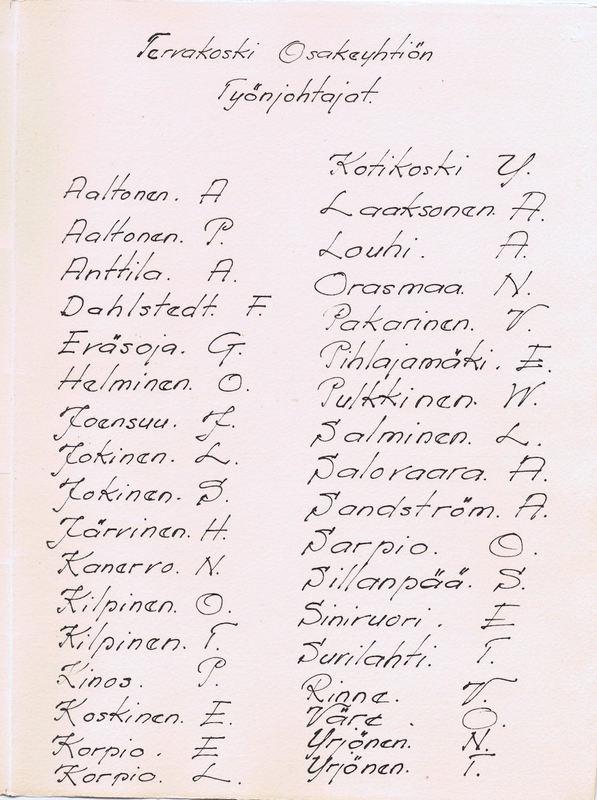 Tervakoski Osakeyhtiön
Työnjohtajat.
Aaltonen. A
Aaltonen. P.
Anttila. A.
Dahlstedt. F.
Eräsoja. G.
Helminen. O.
Joensuu. J.
Jokinen. L.
Jokinen. S.
Järvinen. H.
Kanervo. N.
Kilpinen. O.
Kilpinen. T.
Kinos. P.
Koskinen. E.
Korpio. E.
Korpio. L.
Kotikoski Y.
Laaksonen. A.
Louhi. A.
Orasmaa. N.
Pakarinen. V.
Pihlajamäki. E.
Pulkkinen. W.
Salminen. L.
Salovaara. A.
Sandström. A.
Sarpio. O.
Sillanpää. S.
Sinivuori. E
Suvilahti. T.
Rinne. V.
Väre. O.
Yrjönen. N.
Yrjönen. T.